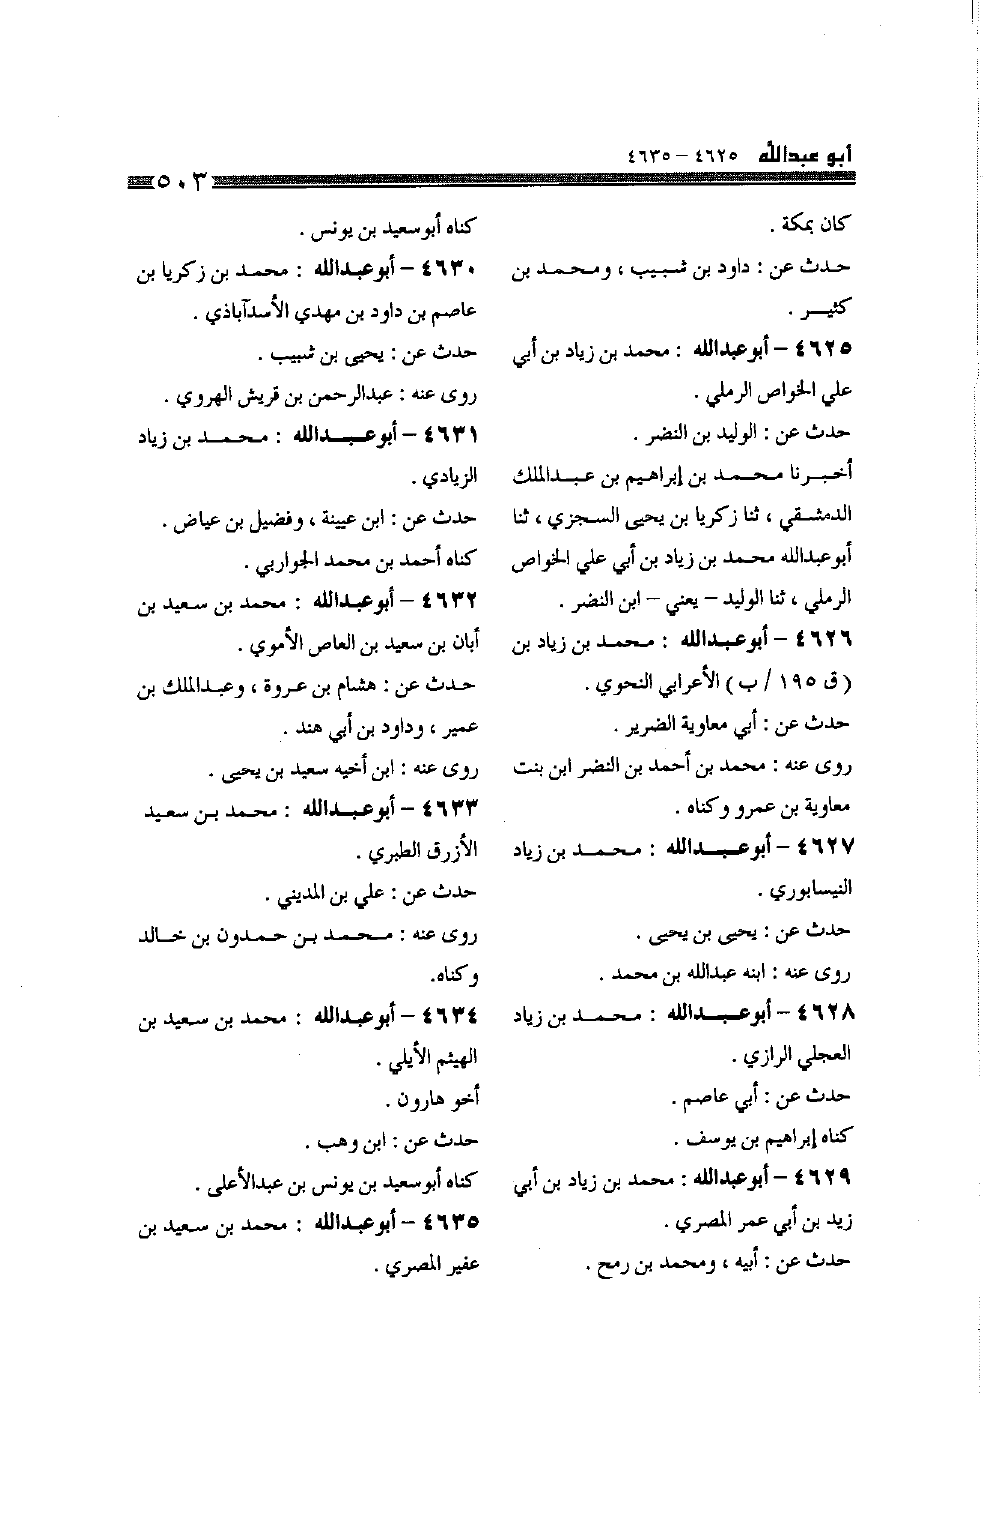 أبو عبدالله ٤٦٢٥ - ٤٦٣٥
٥٠٣
كان بمكة .
حدث عن : داود بن شبيب ، ومحمد بن
كثير .
٤٦٢٥ - أبوعبدالله : محمد بن زياد بن أبي
علي الخواص الرملي .
حدث عن : الوليد بن النضر .
أخبرنا محمد بن إبراهيم بن عبدالملك
الدمشقي ، ثنا زكريا بن يحيى السجزي ، ثنا
أبوعبدالله محمد بن زياد بن أبي علي الخواص
الرملي ، ثنا الوليد - يعني - ابن النضر .
٤٦٢٦ - أبوعبدالله : محمد بن زياد بن
( ق ١٩٥ / ب ) الأعرابي النحوي .
حدث عن : أبي معاوية الضرير .
روى عنه : محمد بن أحمد بن النضر ابن بنت
معاوية بن عمرو وكناه .
٤٦٢٧ - أبوعبدالله : محمد بن زياد
النيسابوري .
حدث عن : يحيى بن يحيى .
روى عنه : ابنه عبدالله بن محمد .
٤٦٢٨ - أبوعبدالله : محمد بن زياد
العجلي الرازي .
حدث عن : أبي عاصم .
كناه إبراهيم بن يوسف .
٤٦٢٩ - أبوعبدالله : محمد بن زياد بن أبي
زيد بن أبي عمر المصري .
حدث عن : أبيه ، ومحمد بن رمح .
كناه أبوسعيد بن يونس .
٤٦٣٠ - أبوعبدالله : محمد بن زكريا بن
عاصم بن داود بن مهدي الأسدآباذي .
حدث عن : يحيى بن شبيب .
روى عنه : عبدالرحمن بن قريش الهروي .
٤٦٣١ - أبوعبدالله : محمد بن زياد
الزيادي .
حدث عن : ابن عيينة ، وفضيل بن عياض .
كناه أحمد بن محمد الجواربي .
٤٦٣٢ - أبوعبدالله : محمد بن سعيد بن
أبان بن سعيد بن العاص الأموي .
حدث عن : هشام بن عروة ، وعبدالملك بن
عمير ، وداود بن أبي هند .
روى عنه : ابن أخيه سعيد بن يحيى .
٤٦٣٣ - أبوعبدالله : محمد بن سعيد
الأزرق الطبري .
حدث عن : علي بن المديني .
روى عنه : محمد بن حمدون بن خالد
وكناه.
٤٦٣٤ - أبوعبدالله : محمد بن سعيد بن
الهيثم الأيلي .
أخو هارون .
حدث عن : ابن وهب .
كناه أبوسعيد بن يونس بن عبدالأعلى .
٤٦٣٥ - أبوعبدالله : محمد بن سعيد بن
عفير المصري .